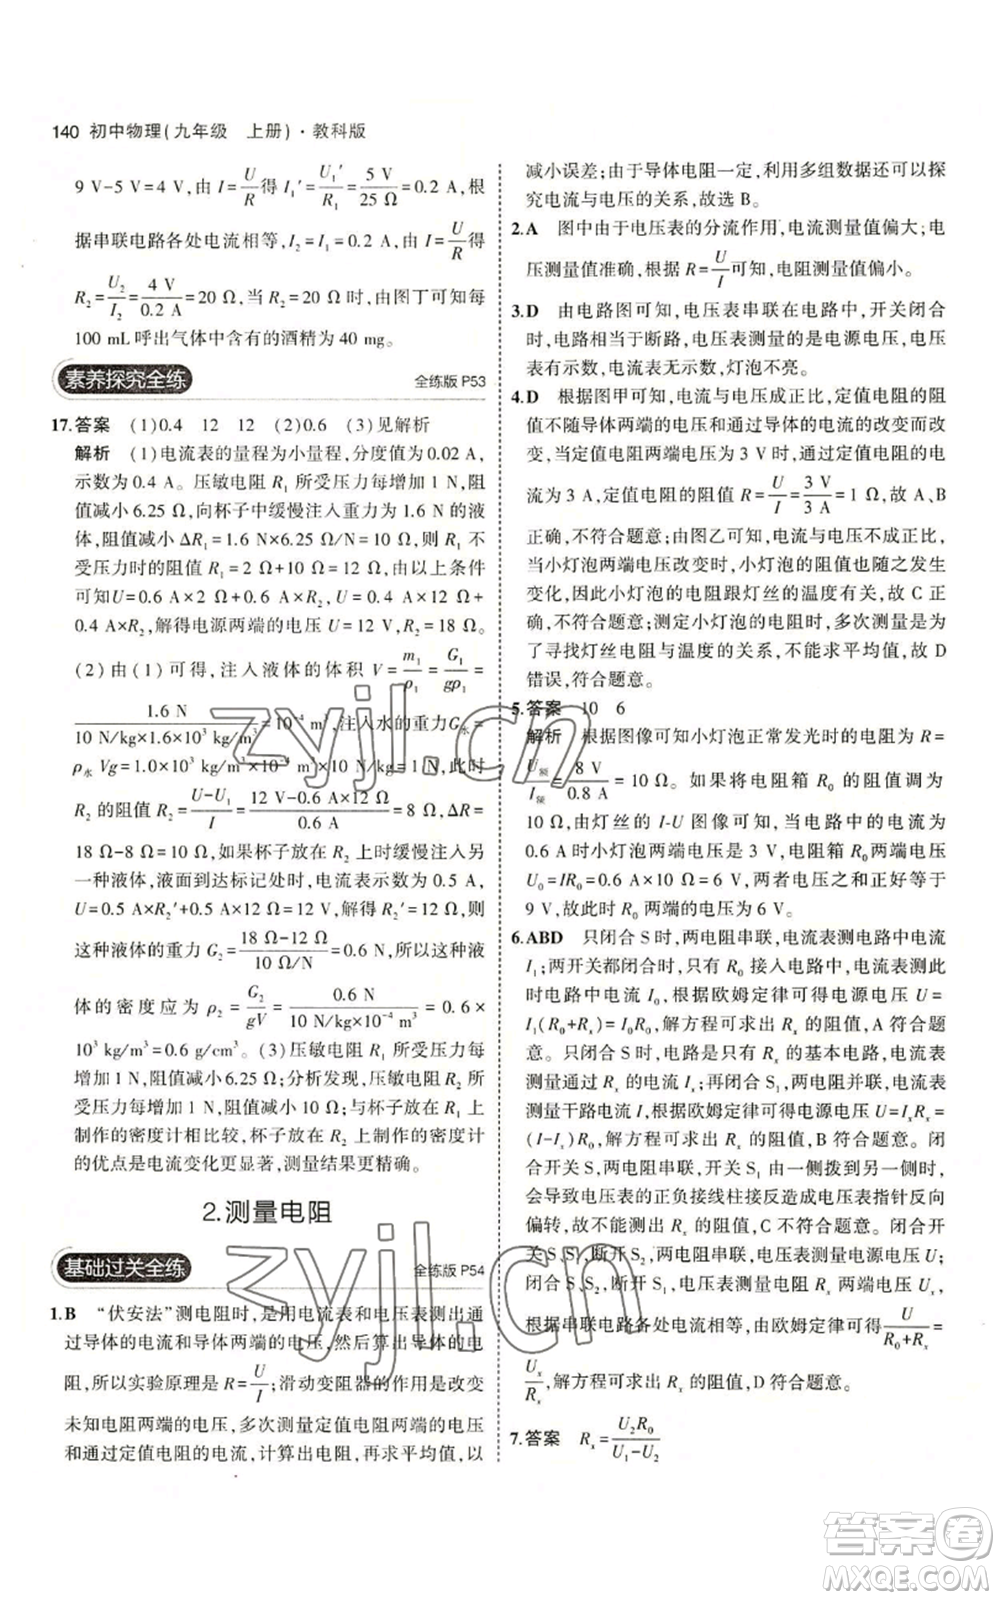 140 初中物理(九年级 上册)·教科版
9 V-5 V=4 V,由 I=U/R得 I₁′=U₁′/R₁=5 V/25 Ω=0.2 A,根
据串联电路各处电流相等,I₂=I₁=0.2 A,由 I=U/R得
R₂=U₂/I₂=4 V/0.2 A=20 Ω,当 R₂=20 Ω时,由图丁可知每
100 mL呼出气体中含有的酒精为40 mg。
素养探究全练 全练版 P53
17.答案 (1)0.4 12 12 (2)0.6 (3)见解析
解析 (1)电流表的量程为小量程,分度值为0.02 A,
示数为0.4 A。压敏电阻 R₁ 所受压力每增加1 N,阻
值减小6.25 Ω,向杯子中缓慢注入重力为1.6 N的液
体,阻值减小 ΔR₁=1.6 N×6.25 Ω/N=10 Ω,则 R₁ 不
受压力时的阻值 R₁₀=2 Ω+10 Ω=12 Ω,由以上条件
可知U=0.6 A×2 Ω+0.6 A×R₂,U=0.4 A×12 Ω+
0.4 A×R₂,解得电源两端的电压 U=12 V,R₂=18 Ω。
(2)由(1)可得,注入液体的体积 V=m₁/ρ₁=G₁/gρ₁=
1.6 N/10 N/kg×1.6×10³ kg/m³=10⁻⁴ m³,注入水的重力G水=
ρ水 Vg=1.0×10³ kg/m³×10⁻⁴ m³×10 N/kg=1 N,此时
R₂ 的阻值 R₂=U-U₁/I=12 V-0.6 A×12 Ω/0.6 A=8 Ω,ΔR=
18 Ω-8 Ω=10 Ω,如果杯子放在 R₂ 上时缓慢注入另
一种液体,液面到达标记处时,电流表示数为0.5 A,
U=0.5 A×R₂′+0.5 A×12 Ω=12 V,解得 R₂′=12 Ω,则
这种液体的重力 G₂=18 Ω-12 Ω/10 Ω/N=0.6 N,所以这种液
体的密度应为 ρ₂=G₂/gV=0.6 N/10 N/kg×10⁻⁴ m³=0.6×
10³ kg/m³=0.6 g/cm³。(3)压敏电阻 R₁ 所受压力每
增加1 N,阻值减小6.25 Ω;分析发现,与杯子放在 R₁ 上
制作的密度计相比较,杯子放在 R₂ 上制作的密度计
的优点是电流变化更显著,测量结果更精确。
2.测量电阻
基础过关全练 全练版 P54
1.B “伏安法”测电阻时,是用电流表和电压表测出通
过导体的电流和导体两端的电压,然后算出导体的电
阻,所以实验原理是 R=U/I;滑动变阻器的作用是改变
未知电阻两端的电压,多次测量定值电阻两端的电压
和通过定值电阻的电流,计算出电阻,再求平均值,以
减小误差;由于导体电阻一定,利用多组数据还可以探
究电流与电压的关系,故选 B。
2.A 图中由于电压表的分流作用,电流测量值偏大;电
压测量值准确,根据 R=U/I可知,电阻测量值偏小。
3.D 由电路图可知,电压表串联在电路中,开关闭合
时,电路相当于断路,电压表测量的是电源电压,电压
表有示数,电流表无示数,灯泡不亮。
4.D 根据图甲可知,电流与电压成正比,定值电阻的阻
值不随导体两端的电压和通过导体的电流的改变而改
变,当定值电阻两端电压为 3 V 时,通过定值电阻的电
流为 3 A,定值电阻的阻值 R=U/I=3 V/3 A=1 Ω,故 A、B
正确,不符合题意;由图乙可知,电流与电压不成正比,
当小灯泡两端电压改变时,小灯泡的电阻随之发生
变化,小灯泡的电阻跟灯丝的温度有关,故 C 正确,
不符合题意;测定小灯泡的电阻时,多次测量是为
了寻找灯丝电阻与温度的关系,不能求平均值,故 D
错误,符合题意。
5.答案 10 6
解析 根据图像可知小灯泡正常发光时的电阻为 R=
U额/I额=8 V/0.8 A=10 Ω。如果将电阻箱 R₀ 的阻值调为
10 Ω,由灯丝的 I-U 图像可知,当电路中的电流为
0.6 A时小灯泡两端电压为 3 V,电阻箱 R₀ 两端电压
U₀=IR₀=0.6 A×10 Ω=6 V,两者电压之和正好等于
9 V,故此时 R₀ 两端的电压为 6 V。
6.ABD 只闭合 S 时,两电阻串联,电流表测电路中电流
I₁;两开关都闭合时,只有 R₀ 接入电路中,电流表测此
时电路中电流 I,根据欧姆定律可得电源电压 U=
I₁(R₀+Rₓ)=IR₀,解方程可求出 Rₓ 的阻值,A 符合题
意。只闭合 S 时,电路是只有 Rₓ 的基本电路,电流表
测量通过 Rₓ 的电流 Iₓ;再闭合 S₁,两电阻并联,电流表
测量干路电流 I,根据欧姆定律可得电源电压 U=IₓRₓ=
(I-Iₓ)R₀,解方程可求出 Rₓ 的阻值,B 符合题意。闭
合 S,两电阻串联,开关 S₁ 由一侧拨到另一侧时,
会导致电压表的正负接线柱接反,电压表指针反向
偏转,不能测出 Rₓ 的阻值,C 不符合题意。闭合开关
S、S₁,断开 S₂,电压表测量电源电压 U;闭合开关
S、S₂,断开 S₁,电压表测量电阻 Rₓ 两端电压 Uₓ,
根据串联电路各处电流相等,由欧姆定律可得U/R₀+Rₓ=
Uₓ/Rₓ,解方程可求出 Rₓ 的阻值,D 符合题意。
7.答案 Rₓ=U₂R₀/U₁-U₂
zyjl.cn
zyjl.cn
答案圈
MXQE.COM